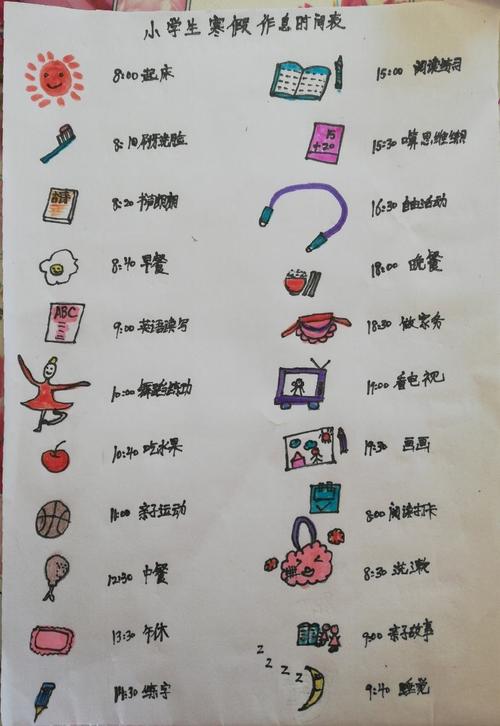 小学生寒假作息时间表
8:00 起床
8:10 刷牙洗脸
8:20
8:40 早餐
ABC
9:00 英语读写
10:00 舞蹈练功
10:40 吃水果
11:00 亲子运动
12:30 中餐
13:30 午休
14:30 练字
15:00 阅读练习
15
+20
15:30 算思维
16:30 自由活动
18:00 晚餐
18:30 做家务
19:00 看电视
19:30 画画
8:00 阅读打卡
8:30 洗漱
9:00 亲子故事
z z z z
9:40 睡觉